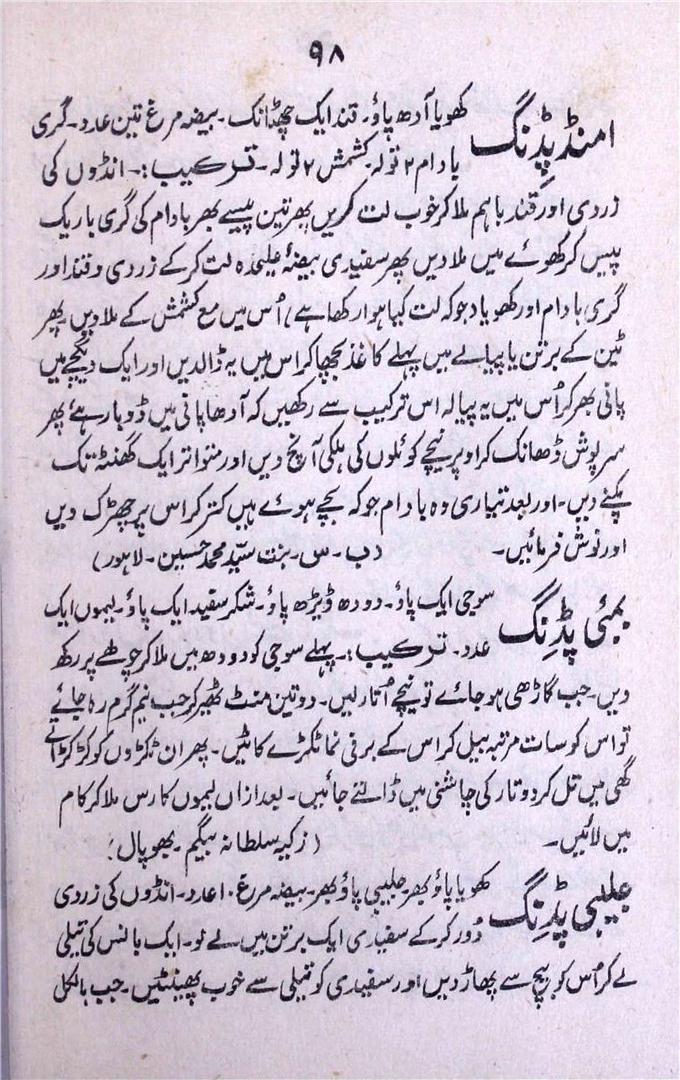 ۹۸
امنڈ پڈنگ کھویا آدھ پاؤ۔ قند ایک چھٹانک۔ بیضہ مرغ تین عدد۔ گری
بادام ۲ تولہ کشمش ۲ تولہ۔ ترکیب:۔ انڈوں کی
زردی اور قند باہم ملا کر خوب لت کریں پھر تین پیسے بھر بادام کی گری باریک
پیس کر کھوئے میں ملا دیں پھر سفیدی بیضۂ علیحدہ لت کر کے زردی و قند اور
گری بادام اور کھویا (جو کہ لت کیا ہوا رکھا ہے) اُس میں مع کشمش کے ملا دیں پھر
ٹین کے برتن یا پیالے میں پہلے کاغذ بچھا کر اس میں یہ ڈالدیں اور ایک دیگچے میں
پانی بھر کر اُس میں یہ پیالہ اس ترکیب سے رکھیں کہ آدھا پانی میں ڈوبا رہے پھر
سرپوش ڈھانک کر اوپر نیچے کوئلوں کی ہلکی آنچ دیں اور متواتر ایک گھنٹہ تک
پکنے دیں۔ اور بعد تیاری وہ بادام جو کہ بچے ہوئے ہیں کتر کر اس پر چھڑک دیں
اور نوش فرمائیں۔ (ب۔ س۔ بنت سیّد محمد حسین۔ لاہور)
بمبئی پڈنگ سوجی ایک پاؤ۔ دودھ ڈیڑھ پاؤ۔ شکر سفید ایک پاؤ۔ لیموں ایک
عدد۔ ترکیب:۔ پہلے سوجی کو دودھ میں ملا کر چولھے پر رکھ
دیں۔ جب گاڑھی ہو جائے تو نیچے اُتار لیں۔ دو تین منٹ ٹھیر کر جب نیم گرم رہ جائے
تو اس کو سات مرتبہ بیل کر اس کے برفی نما ٹکڑے کاٹیں۔ پھر ان ٹکڑوں کو کڑکڑاتے
گھی میں تل کر دو تار کی چاشنی میں ڈالتے جائیں۔ بعد ازاں لیموں کا رس ملا کر کام
میں لائیں۔ (زکیہ سلطانہ بیگم۔ بھوپال)
جلیبی پڈنگ کھویا پاؤ بھر۔ جلیبی پاؤ بھر۔ بیضہ مرغ ۱۰ عدد۔ انڈوں کی زردی
دُور کر کے سفیدی ایک برتن میں لے لو۔ ایک بانس کی تیلی
لے کر اُس کو بیچ سے پھاڑ دیں اور سفیدی کو تیلی سے خوب پھینٹیں۔ جب بالکل